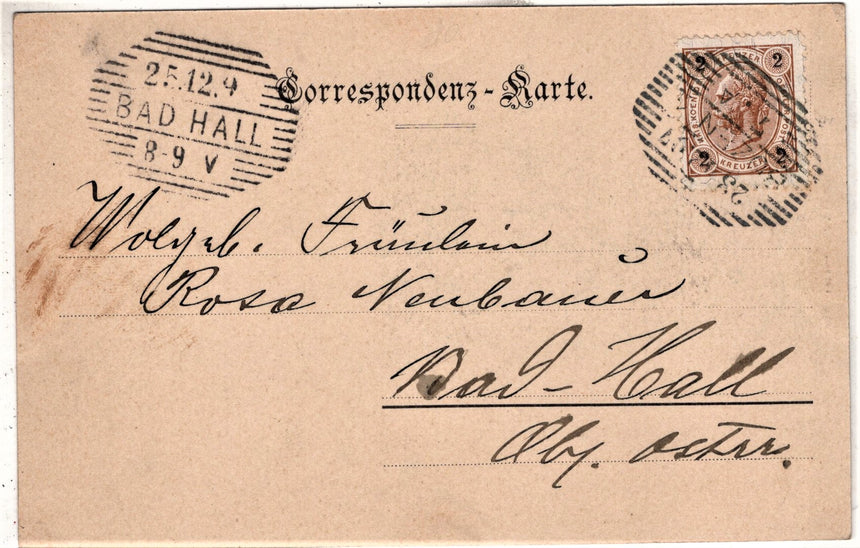 25.12.9
BAD HALL
8-9 V
Correspondenz-Karte.
2 KREUZER 2
2 KREUZER 2
Wolgeb. Fräulein
Rosa Neubauer
Bad-Hall
Ob. österr.